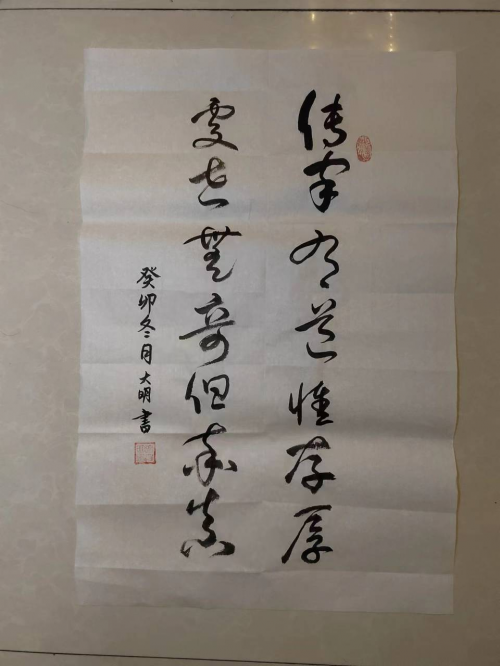 傳家有道惟存厚
處世無奇但率真
癸卯冬月大明書